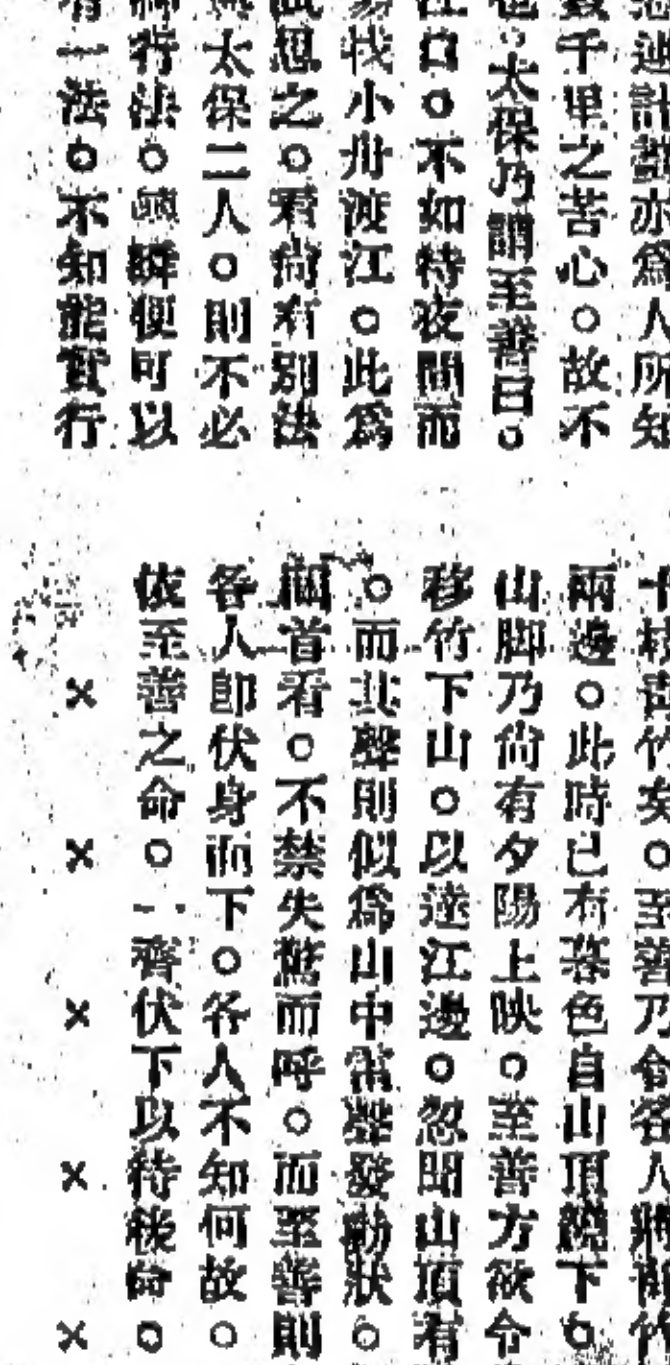 迎計劃亦爲人所知
數千里之苦心。故不
也。太保乃謂至善曰。
江口。不如特夜間而
易伐小舟渡江。此爲
試思之。君尙有別法
太保二人。則不必
行法。瞬便可以
有一法。不知能實行
十枝靑竹安。至善乃令各人將靑竹
兩邊。此時已有暮色自山頂繞下。
山脚乃尙有夕陽上映。至善方欲令
移竹下山。以達江邊。忽聞山頂有
。而其聲則似爲山中雷聲發動狀。
首看。不禁失驚而呼。而至善則
各人卽伏身而下。各人不知何故。
依至善之命。一齊伏下以待後命。
× × × × ×